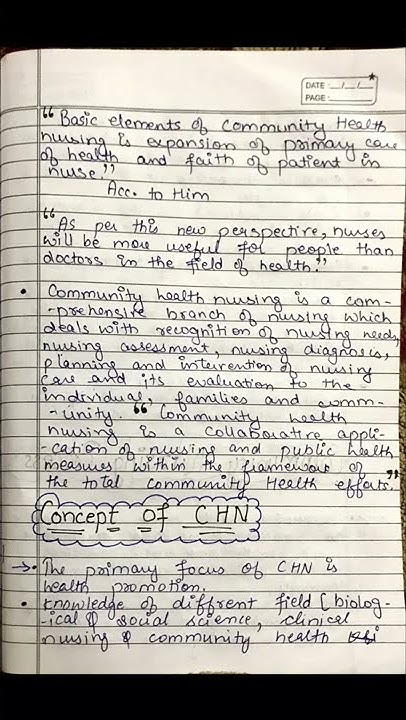 DATE: __/__/__
PAGE:
"Basic elements of Community Health
nursing is expansion of primary care
of health and faith of patient in
nurse."
Acc. to Him
"As per this new perspective, nurses
will be more useful for people than
doctors in the field of health."
• Community health nursing is a com-
-prehensive branch of nursing which
deals with recognition of nursing needs,
nursing assessment, nursing diagnosis,
planning and intervention of nursing
care and its evaluation to the
individual, families and comm-
-unity. "Community health
nursing is a collaborative appli-
-cation of nursing and public health
measures within the framework of
the total community Health efforts."
Concept of CHN
→• The primary focus of CHN is
health promotion.
• Knowledge of diffrent field [biolog-
-ical & social science, clinical
nursing & community health